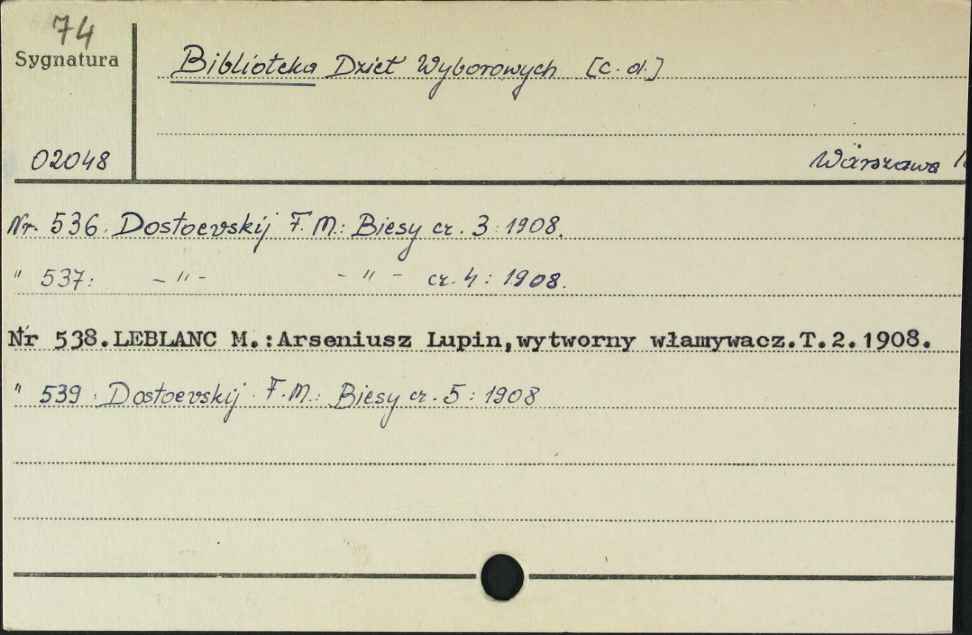 74
Sygnatura
Biblioteka Dzieł Wyborowych [c.d.]
02048
Warszawa
Nr. 536. Dostoevskij F. M.: Biesy cz. 3: 1908.
" 537: - " - - " - cz. 4: 1908.
Nr 538.LEBLANC M.:Arseniusz Lupin,wytworny włamywacz.T.2.1908.
" 539. Dostoevskij F.M.: Biesy cz. 5: 1908